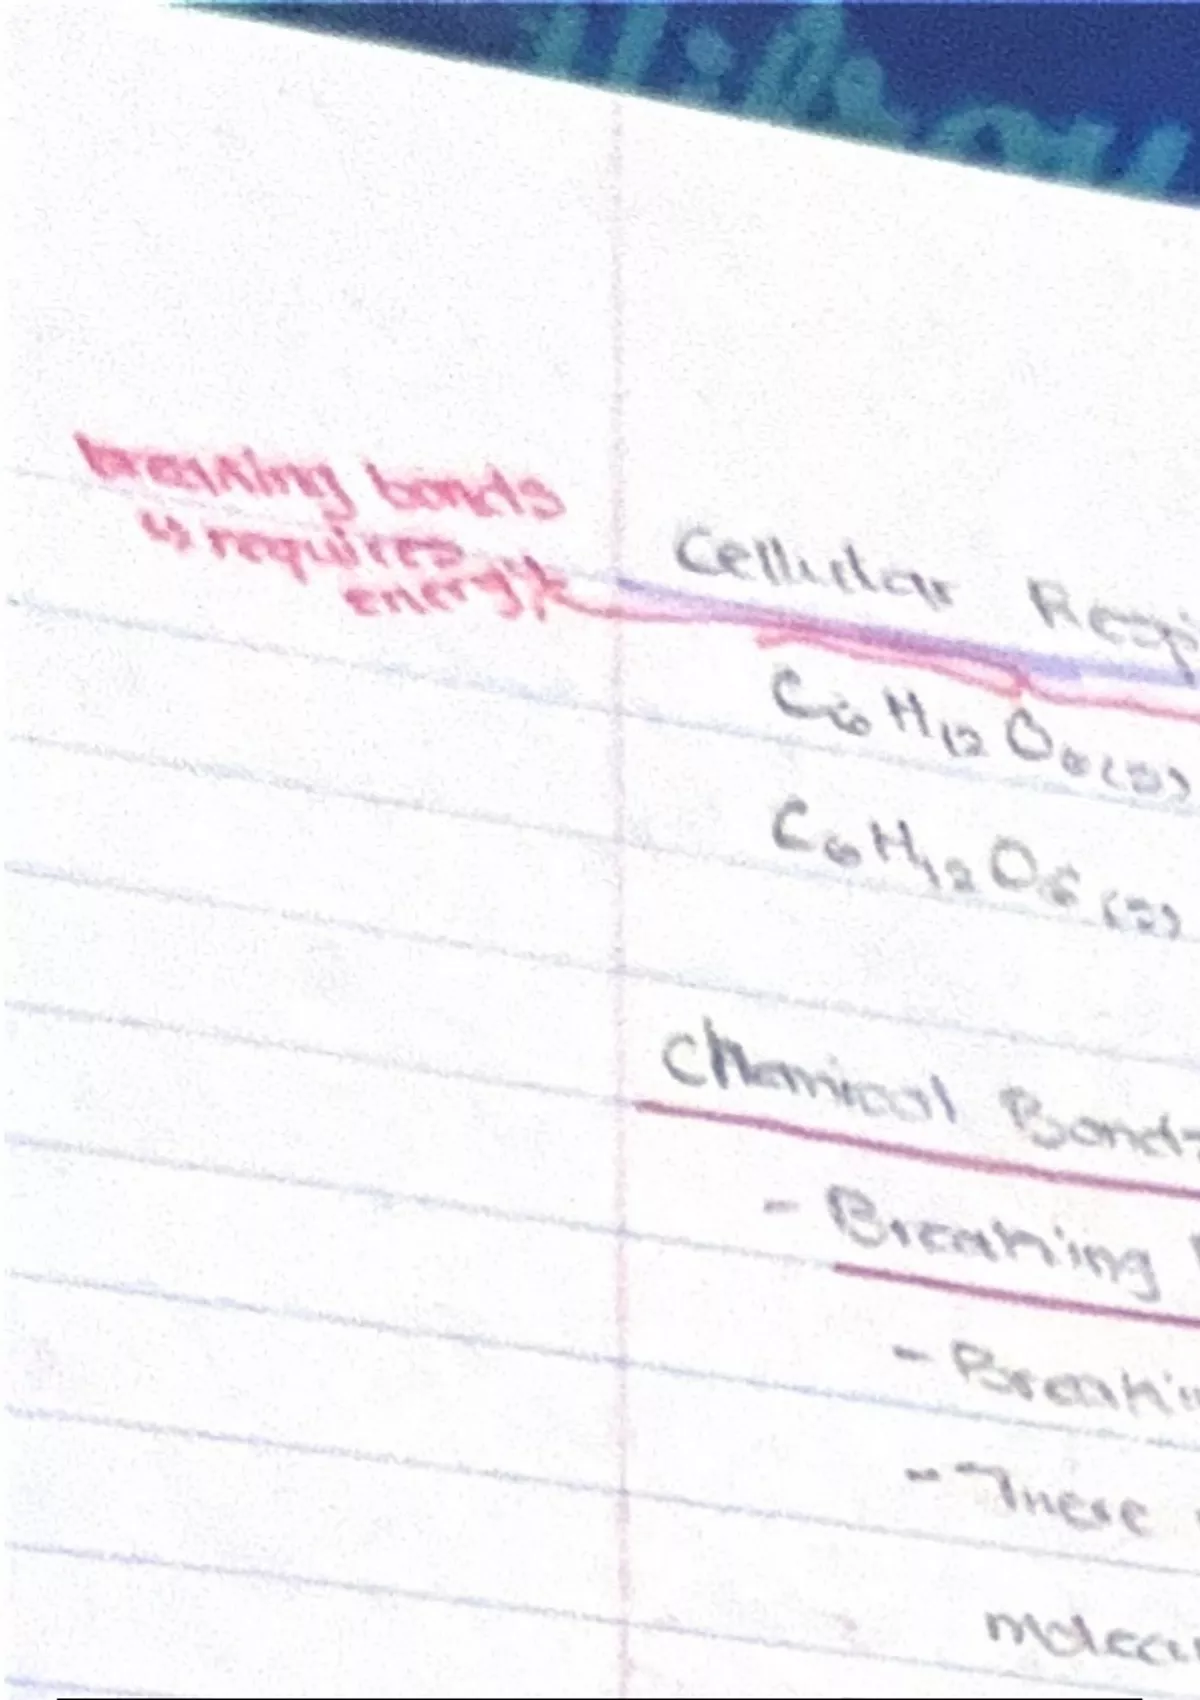 breaking bonds
↳ requires
energy
Cellular Resp
C6H12O6(s)
C6H12O6(s)
Chemical Bonds
- Breaking
- Breakin
- These
molecu